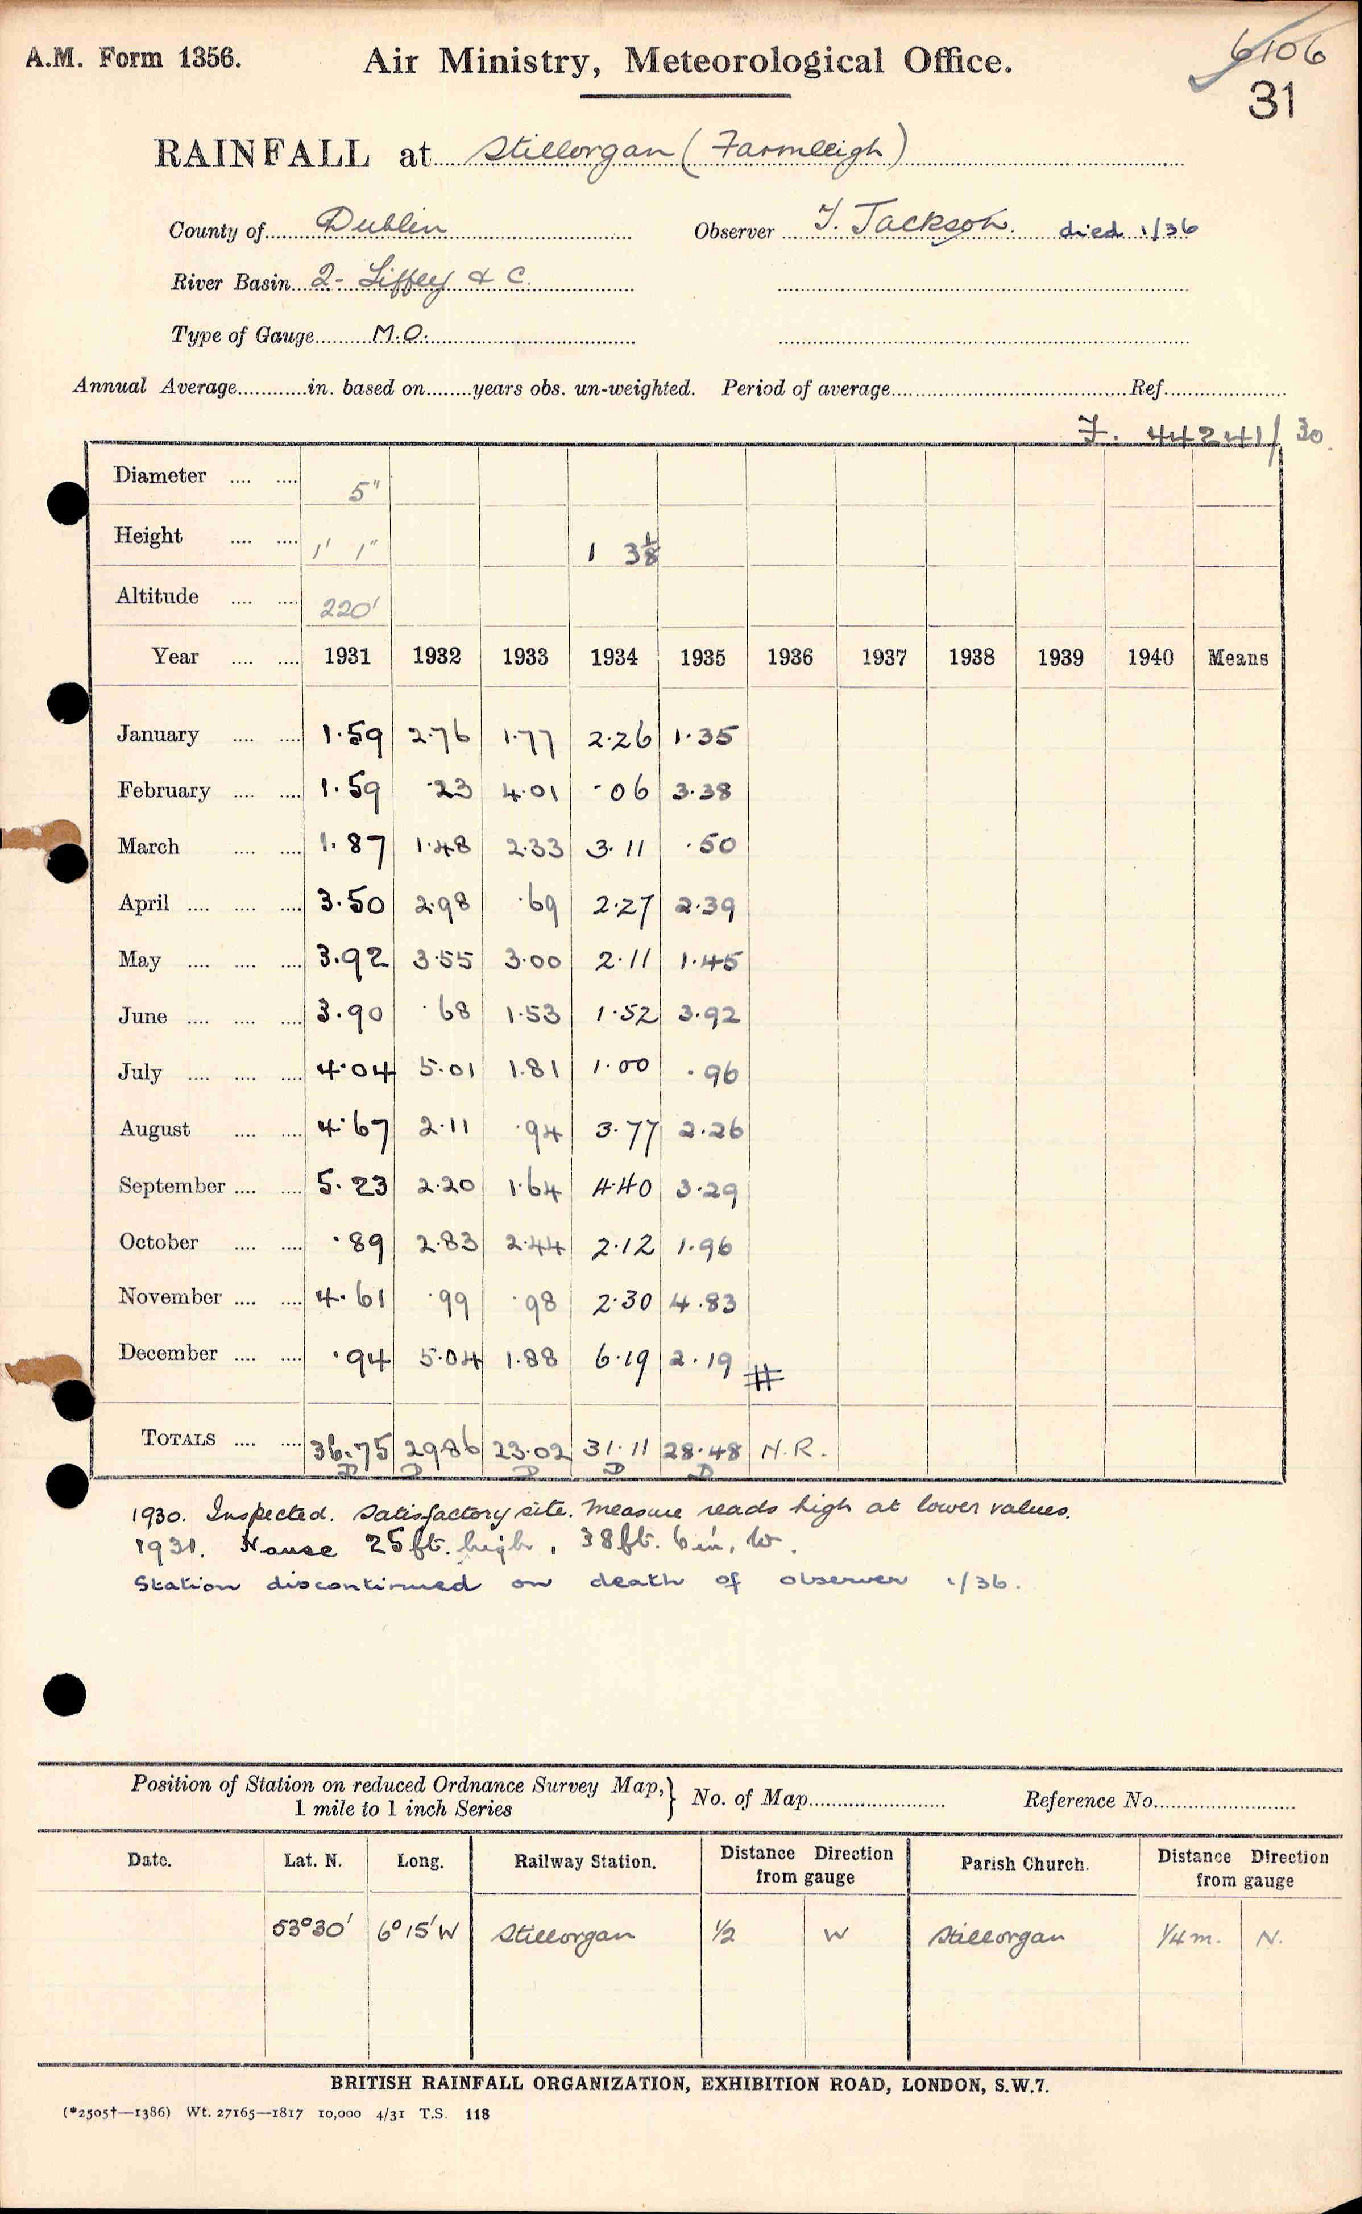 A.M. Form 1356.
Air Ministry, Meteorological Office.
6106
31
RAINFALL at Stillorgan (Farmleigh)
County of Dublin Observer T. Jackson. died 1/36
River Basin 2- Liffey & C.
Type of Gauge M.O.
Annual Average in. based on years obs. un-weighted. Period of average Ref.
F. 44241/30.
Diameter 5"
Height 1' 1" 1 3 1/8
Altitude 220'
Year 1931 1932 1933 1934 1935 1936 1937 1938 1939 1940 Means
January 1.59 2.76 1.77 2.26 1.35
February 1.59 .23 4.01 .06 3.38
March 1.87 1.48 2.33 3.11 .50
April 3.50 2.98 .69 2.27 2.39
May 3.92 3.55 3.00 2.11 1.45
June 3.90 .68 1.53 1.52 3.92
July 4.04 5.01 1.81 1.00 .96
August 4.67 2.11 .94 3.77 2.26
September 5.23 2.20 1.64 4.40 3.29
October .89 2.83 2.44 2.12 1.96
November 4.61 .99 .98 2.30 4.83
December .94 5.04 1.88 6.19 2.19 #
TOTALS 36.75 29.86 23.02 31.11 28.48 N.R.
D D D D D
1930. Inspected. Satisfactory site. Measure reads high at lower values.
1931. House 25ft. high, 38ft. 6in, W.
Station discontinued on death of observer 1/36.
Position of Station on reduced Ordnance Survey Map, } No. of Map Reference No.
1 mile to 1 inch Series
Date. Lat. N. Long. Railway Station. Distance Direction from gauge Parish Church. Distance Direction from gauge
53°30' 6°15'W Stillorgan 1/2 W Stillorgan 1/4 m. N.
BRITISH RAINFALL ORGANIZATION, EXHIBITION ROAD, LONDON, S.W.7.
(*2505†—1386) Wt. 27165—1817 10,000 4/31 T.S. 118